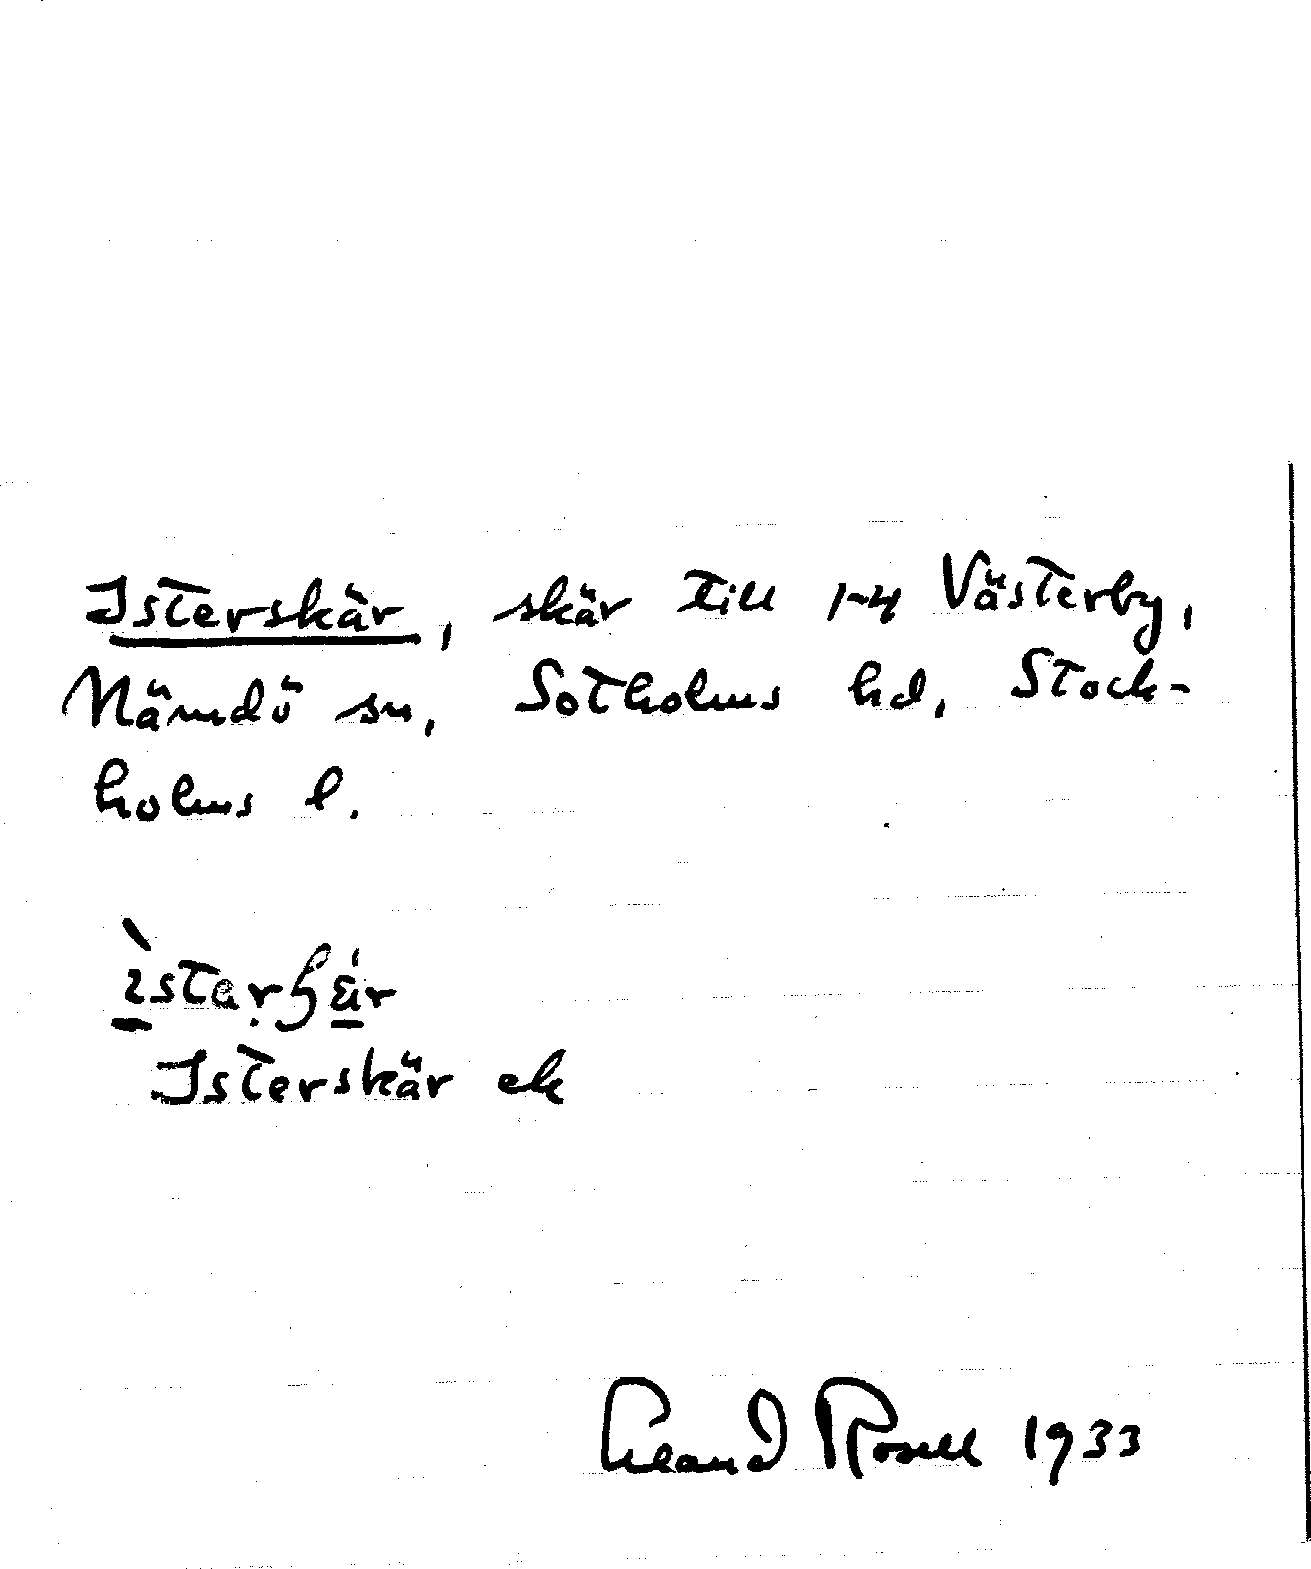 Isterskär, skär till 1-4 Västerby,
Nämdö sn, Sotholms hd, Stock-
holms l.
Isterskär ek
Rosell 1933